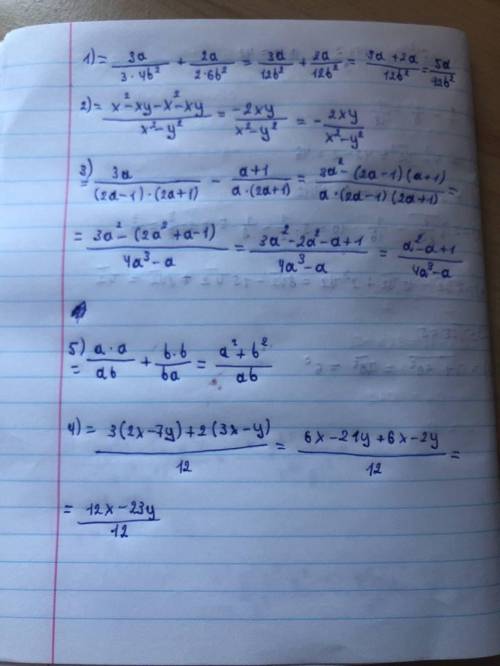 1) = 3a/(3·4b²) + 2a/(2·6b²) = 3a/12b² + 2a/12b² = (3a+2a)/12b² = 5a/12b²
2) = (x²-xy-x²-xy)/(x²-y²) = -2xy/(x²-y²) = - 2xy/(x²-y²)
3) = 3a/((2a-1)·(2a+1)) - (a+1)/(a·(2a+1)) = (3a²-(2a-1)(a+1))/(a·(2a-1)(2a+1)) =
= (3a²-(2a²+a-1))/(4a³-a) = (3a²-2a²-a+1)/(4a³-a) = (a²-a+1)/(4a³-a)
5) = a·a/ab + b·b/ba = (a²+b²)/ab
4) = (3(2x-7y)+2(3x-y))/12 = (6x-21y+6x-2y)/12 =
= (12x-23y)/12